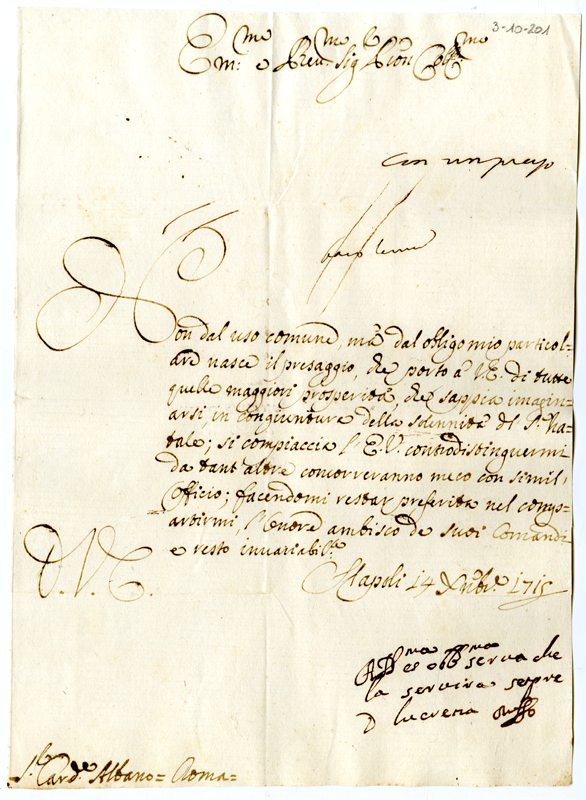 3-10-201
Em:mo e Reu:mo Sig:r Pron Coll:mo
Non dal uso comune, mà dal obligo mio particol=
are nasce il presaggio, che porto à V.E. di tutte
quelle maggiori prosperità, che sappia imagin=
arsi, in congiuntura della solennità del S. Na=
tale; si compiaccia l'E.V. controdistinguermi
da tant'altre concorreranno meco con simil,
Officio; facendomi restar preferita nel comp=
artirmi, l'onore ambisco de suoi Comandi
e resto inuariabil.e
D. V. E.
Napoli 14 Xmbr.e 1715
es obb.ma serua che
la seruira sempre
D lucretia Ruffo
S.r Card.le Albano = Roma =